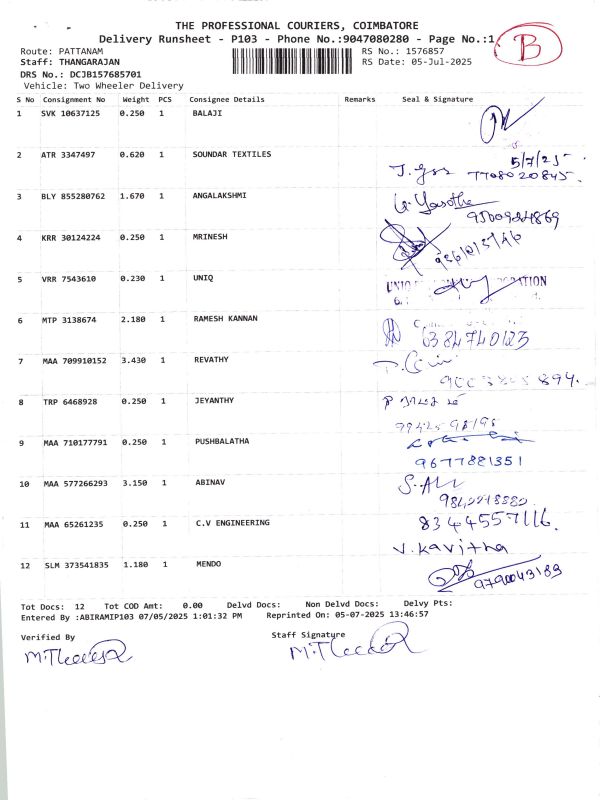 THE PROFESSIONAL COURIERS, COIMBATORE
Delivery Runsheet - P103 - Phone No.:9047080280 - Page No.:1
B
Route: PATTANAM RS No.: 1576857
Staff: THANGARAJAN RS Date: 05-Jul-2025
DRS No.: DCJB157685701
Vehicle: Two Wheeler Delivery
S No Consignment No Weight PCS Consignee Details Remarks Seal & Signature
1 SVK 10637125 0.250 1 BALAJI
2 ATR 3347497 0.620 1 SOUNDAR TEXTILES 5/7/25
7708020845.
3 BLY 855280762 1.670 1 ANGALAKSHMI
4 KRR 30124224 0.250 1 MRINESH
5 VRR 7543610 0.230 1 UNIQ
6 MTP 3138674 2.180 1 RAMESH KANNAN
6384740123
7 MAA 709910152 3.430 1 REVATHY
8 TRP 6468928 0.250 1 JEYANTHY
9 MAA 710177791 0.250 1 PUSHBALATHA
9677881351
10 MAA 577266293 3.150 1 ABINAV
11 MAA 65261235 0.250 1 C.V ENGINEERING 8344557116.
V. Kavitha
12 SLM 373541835 1.180 1 MENDO 9790043189
Tot Docs: 12 Tot COD Amt: 0.00 Delvd Docs: Non Delvd Docs: Delvy Pts:
Entered By :ABIRAMIP103 07/05/2025 1:01:32 PM Reprinted On: 05-07-2025 13:46:57
Verified By Staff Signature